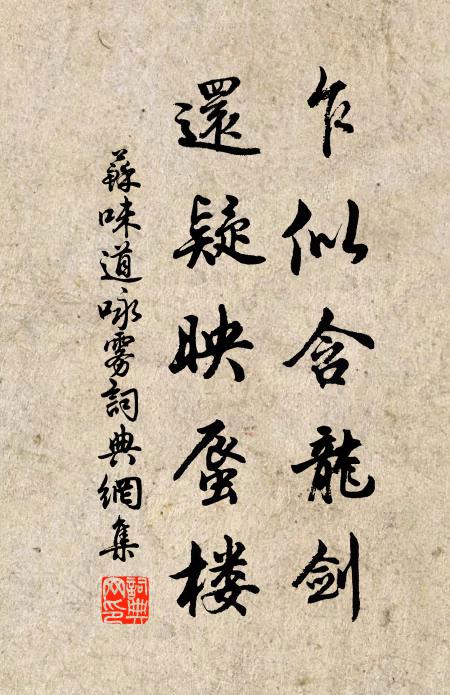 乍似含龍劍
還疑映蜃楼
蘇味道咏雾詞典網集
詞典
网印